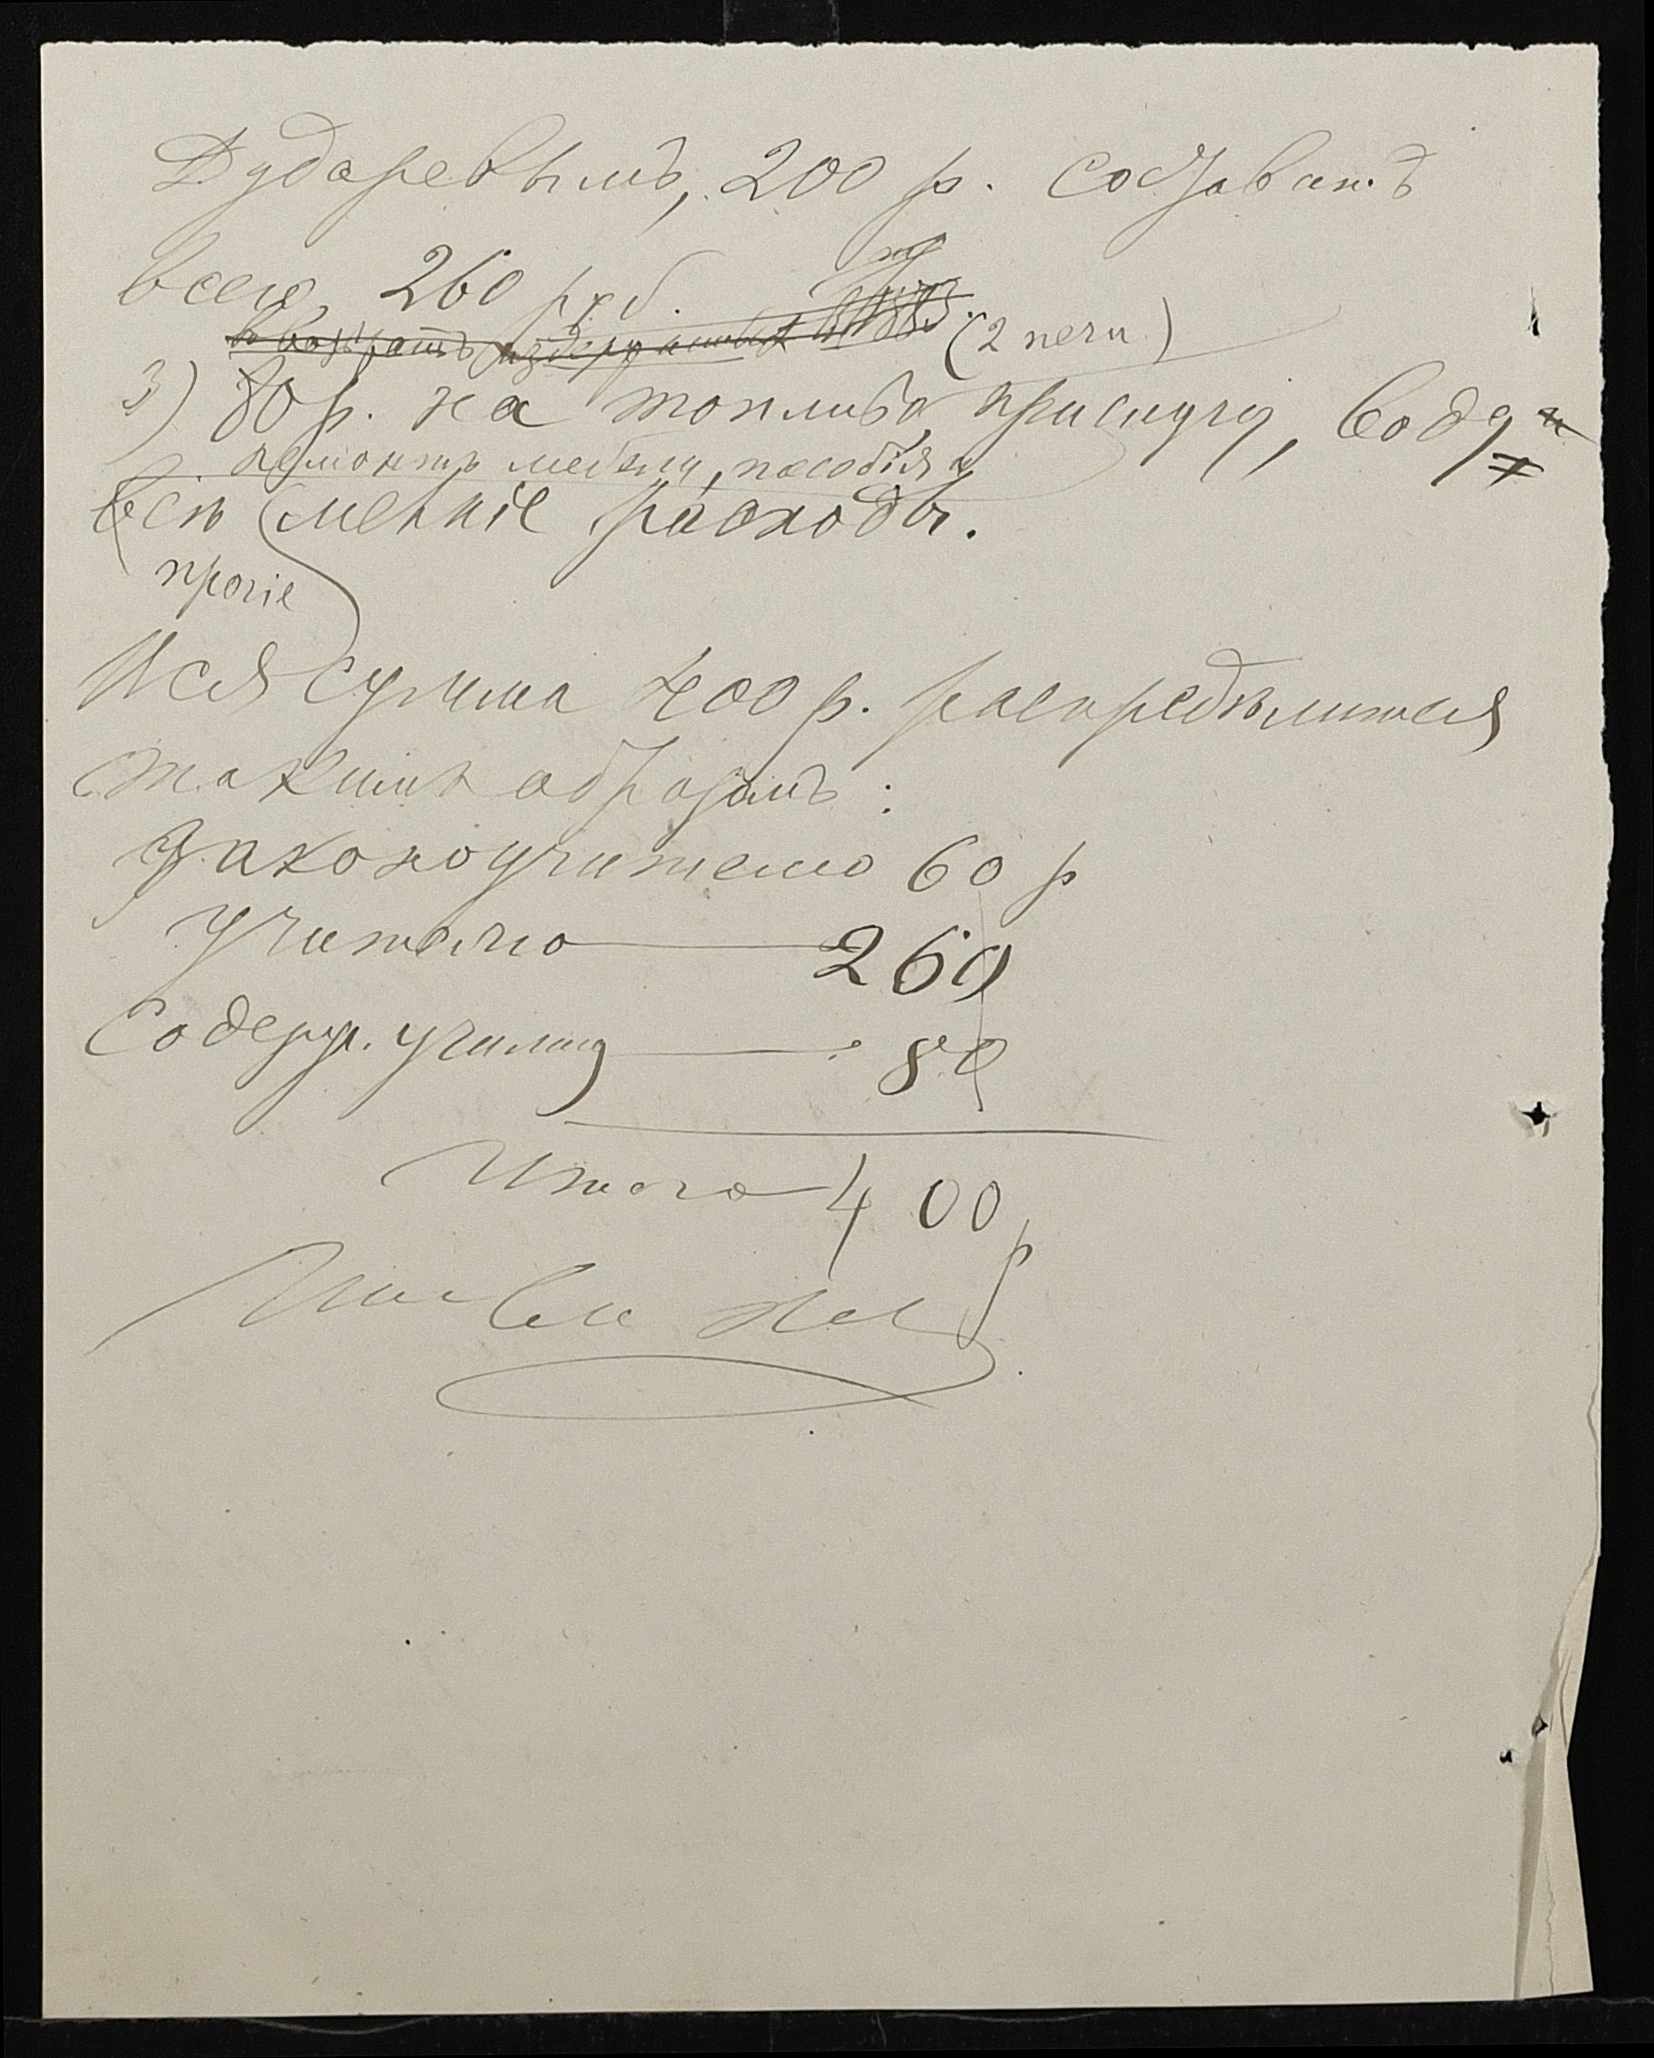 Дударевымъ, 200 р. составитъ
всего 260 руб.
(2 печи)
3) 80 р. на топливо, прислугу, воду и
ремонтъ мебели, пособія и
всѣ мелкіе расходы.
прочіе
Вся сумма 400 р. распредѣлится
такимъ образомъ:
Законоучителю 60 р
Учителю 260
Содерж. училищ 80
Итого 400 р